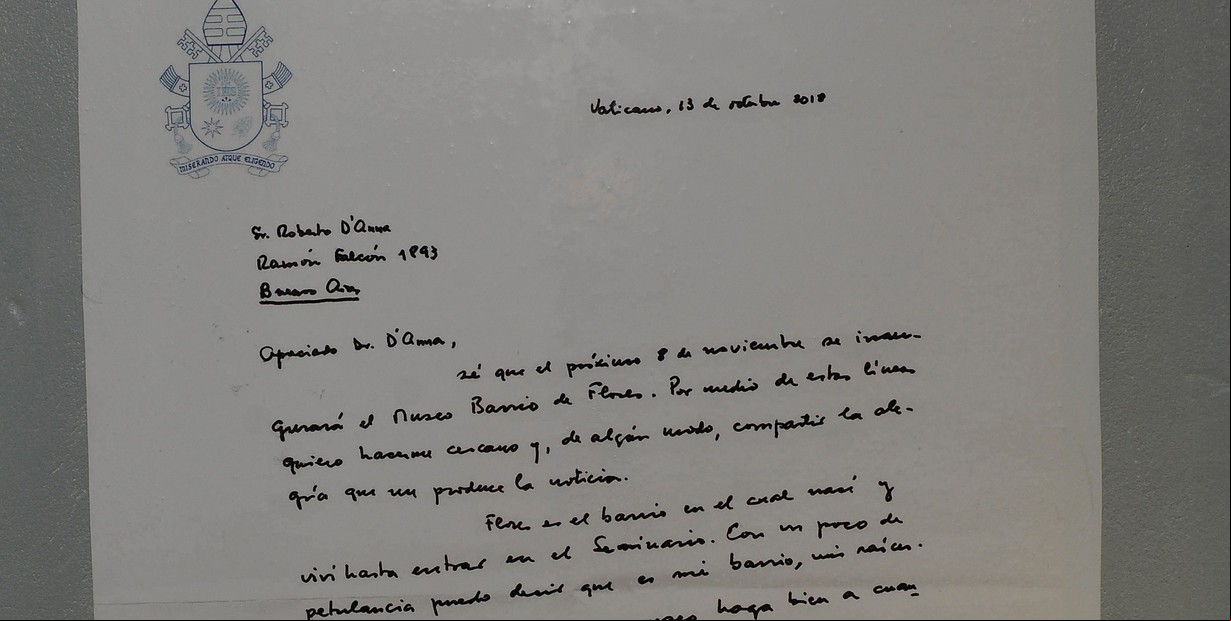 IHS
MISERANDO ATQUE ELIGENDO
Vaticano, 13 de octubre 2018
Sr. Roberto D'Anna
Ramón Falcón 1893
Buenos Aires
Apreciado Dr. D'Anna,
sé que el próximo 8 de noviembre se inau-
gurará el Museo Barrio de Flores. Por medio de estas líneas
quiero hacerme cercano y, de algún modo, compartir la ale-
gría que me produce la noticia.
Flores es el barrio en el cual nací y
viví hasta entrar en el Seminario. Con un poco de
petulancia puedo decir que es mi barrio, mis raíces.
haga bien a cuan